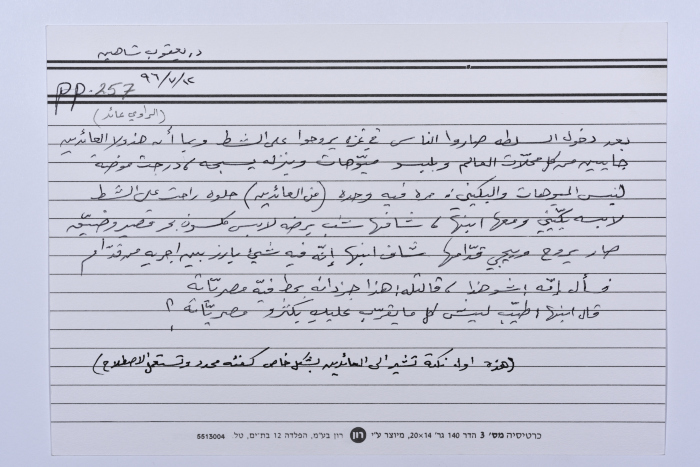 د. يعقوب شاهين
٩٦/٧/١٢
PP. 257
(الراوي عائد)
بعد دخول السلطه صاروا الناس في غزه يروحوا على الشط وبما أنه هذولا العائدين
جايبين من كل محلات العالم وبلبسو ميوهات وبنزله يسبحه، درجت موضة
لبس الميوهات والبكيني. مره فيه وحده (من العائدين) حلوه راحت على الشط
لابسه بكيني ومعها ابنها، شافها شب برضه لابس كلسون بحر قصير وضيق
صار يروح وييجي قدامها شاف ابنها إنه فيه شي بارز بين اجريه من قدام
فسأل إمه اشو هذا، قالتله هذا جزدانه بحط فيه مصرياته
قال ابنها اطيب ليش كل ما يقرب عليك بكثرو مصرياته؟
(هذه اول نكتة تشير الى العائدين بشكل خاص كفئه محدد وتستعمل الاصطلاح)
כרטיסיה מס' 3 הדר 140 גר' 20×14, מיוצר ע"י רון רון בע"מ, הפלדה 12 בת-ים, טל. 5513004